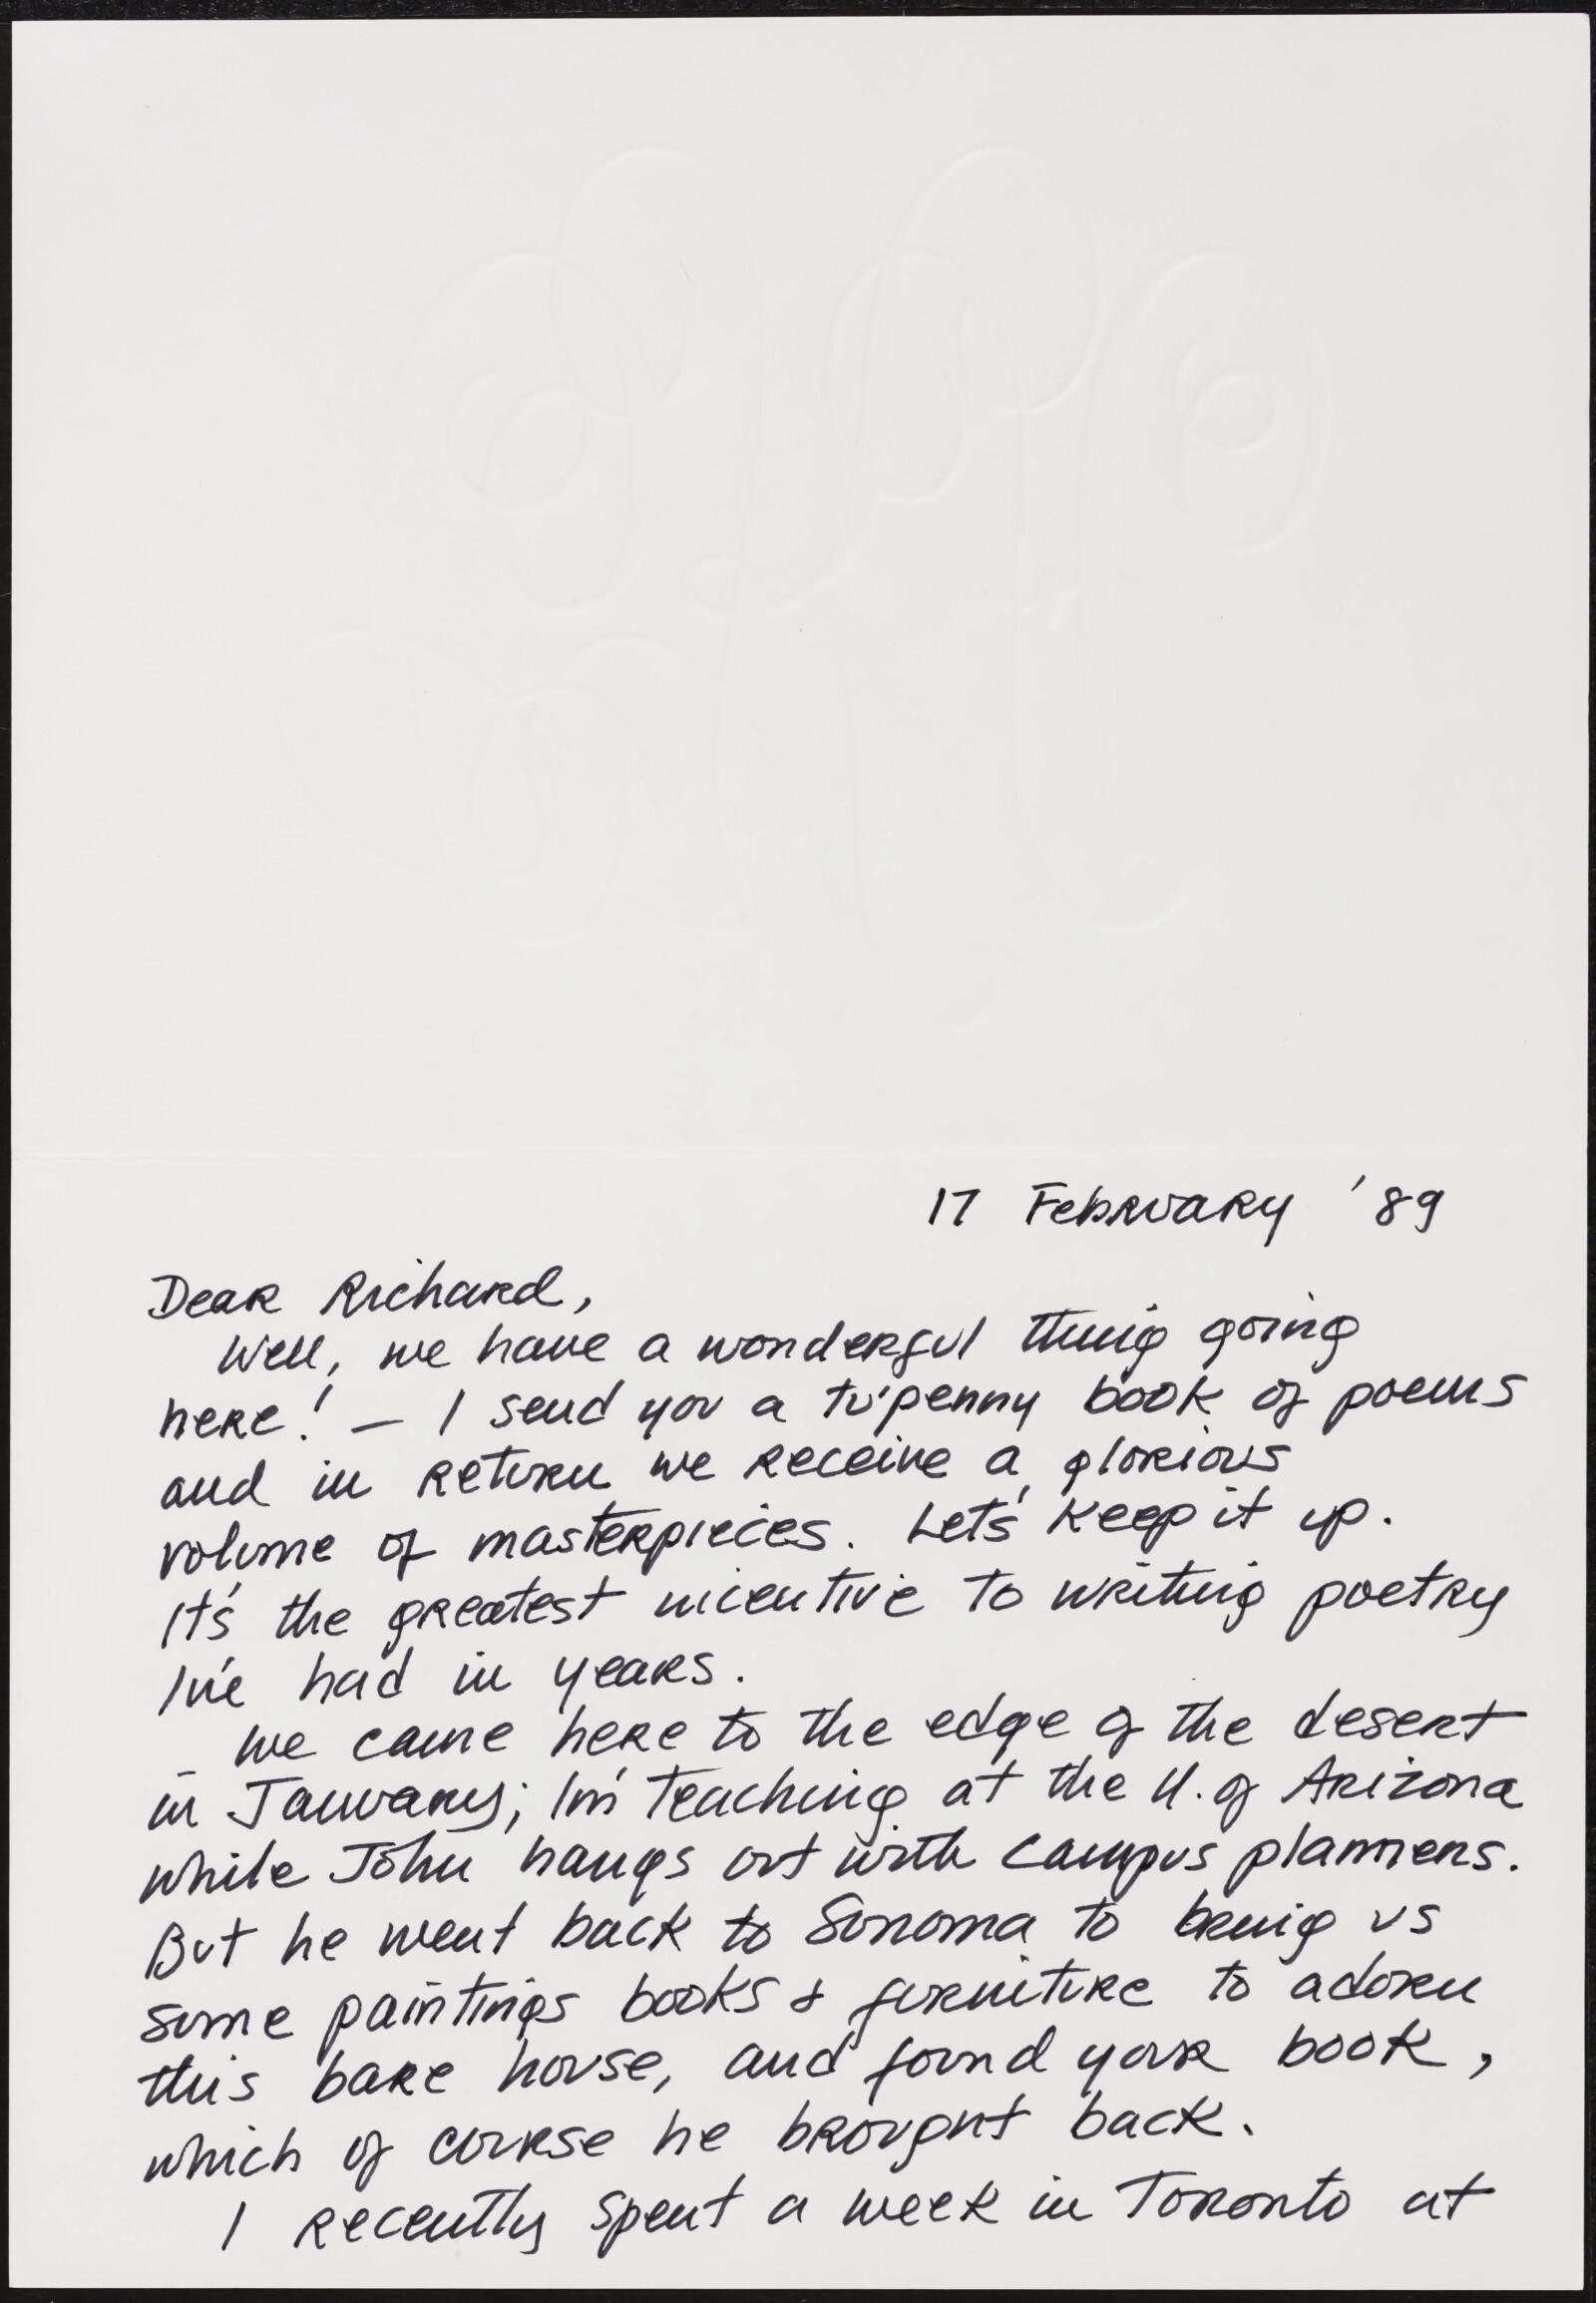 17 February '89
Dear Richard,
Well, we have a wonderful thing going
here! — I send you a tu'penny book of poems
and in return we receive a glorious
volume of masterpieces. Let's keep it up.
It's the greatest incentive to writing poetry
I've had in years.
We came here to the edge of the desert
in January; I'm teaching at the U. of Arizona
while John hangs out with campus planners.
But he went back to Sonoma to bring us
some paintings books & furniture to adorn
this bare house, and found your book,
which of course he brought back.
I recently spent a week in Toronto at